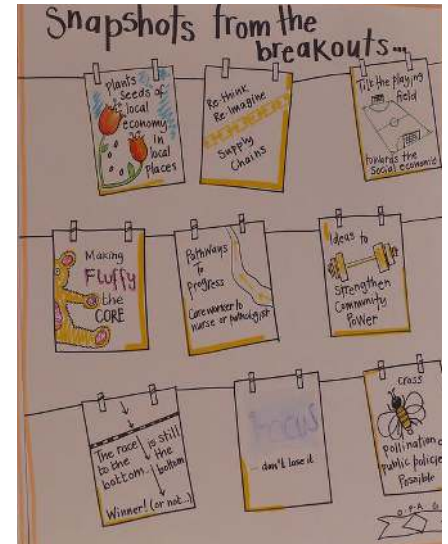 Snapshots from the
breakouts...
Plants
Seeds of
local
economy
in
local
Places
Re-think
Re-Imagine
Supply
Chains
Tilt the playing
field
towards the
Social economic
Making
Fluffy
the
CORE
Pathways
To
Progress
Careworker to
nurse or pathologist
Ideas to
Strengthen
Community
Power
The race is still
to the
bottom. the bottom
Winner! (or not..)
Focus
- don't lose it
Cross
pollination of
public policies
Possible